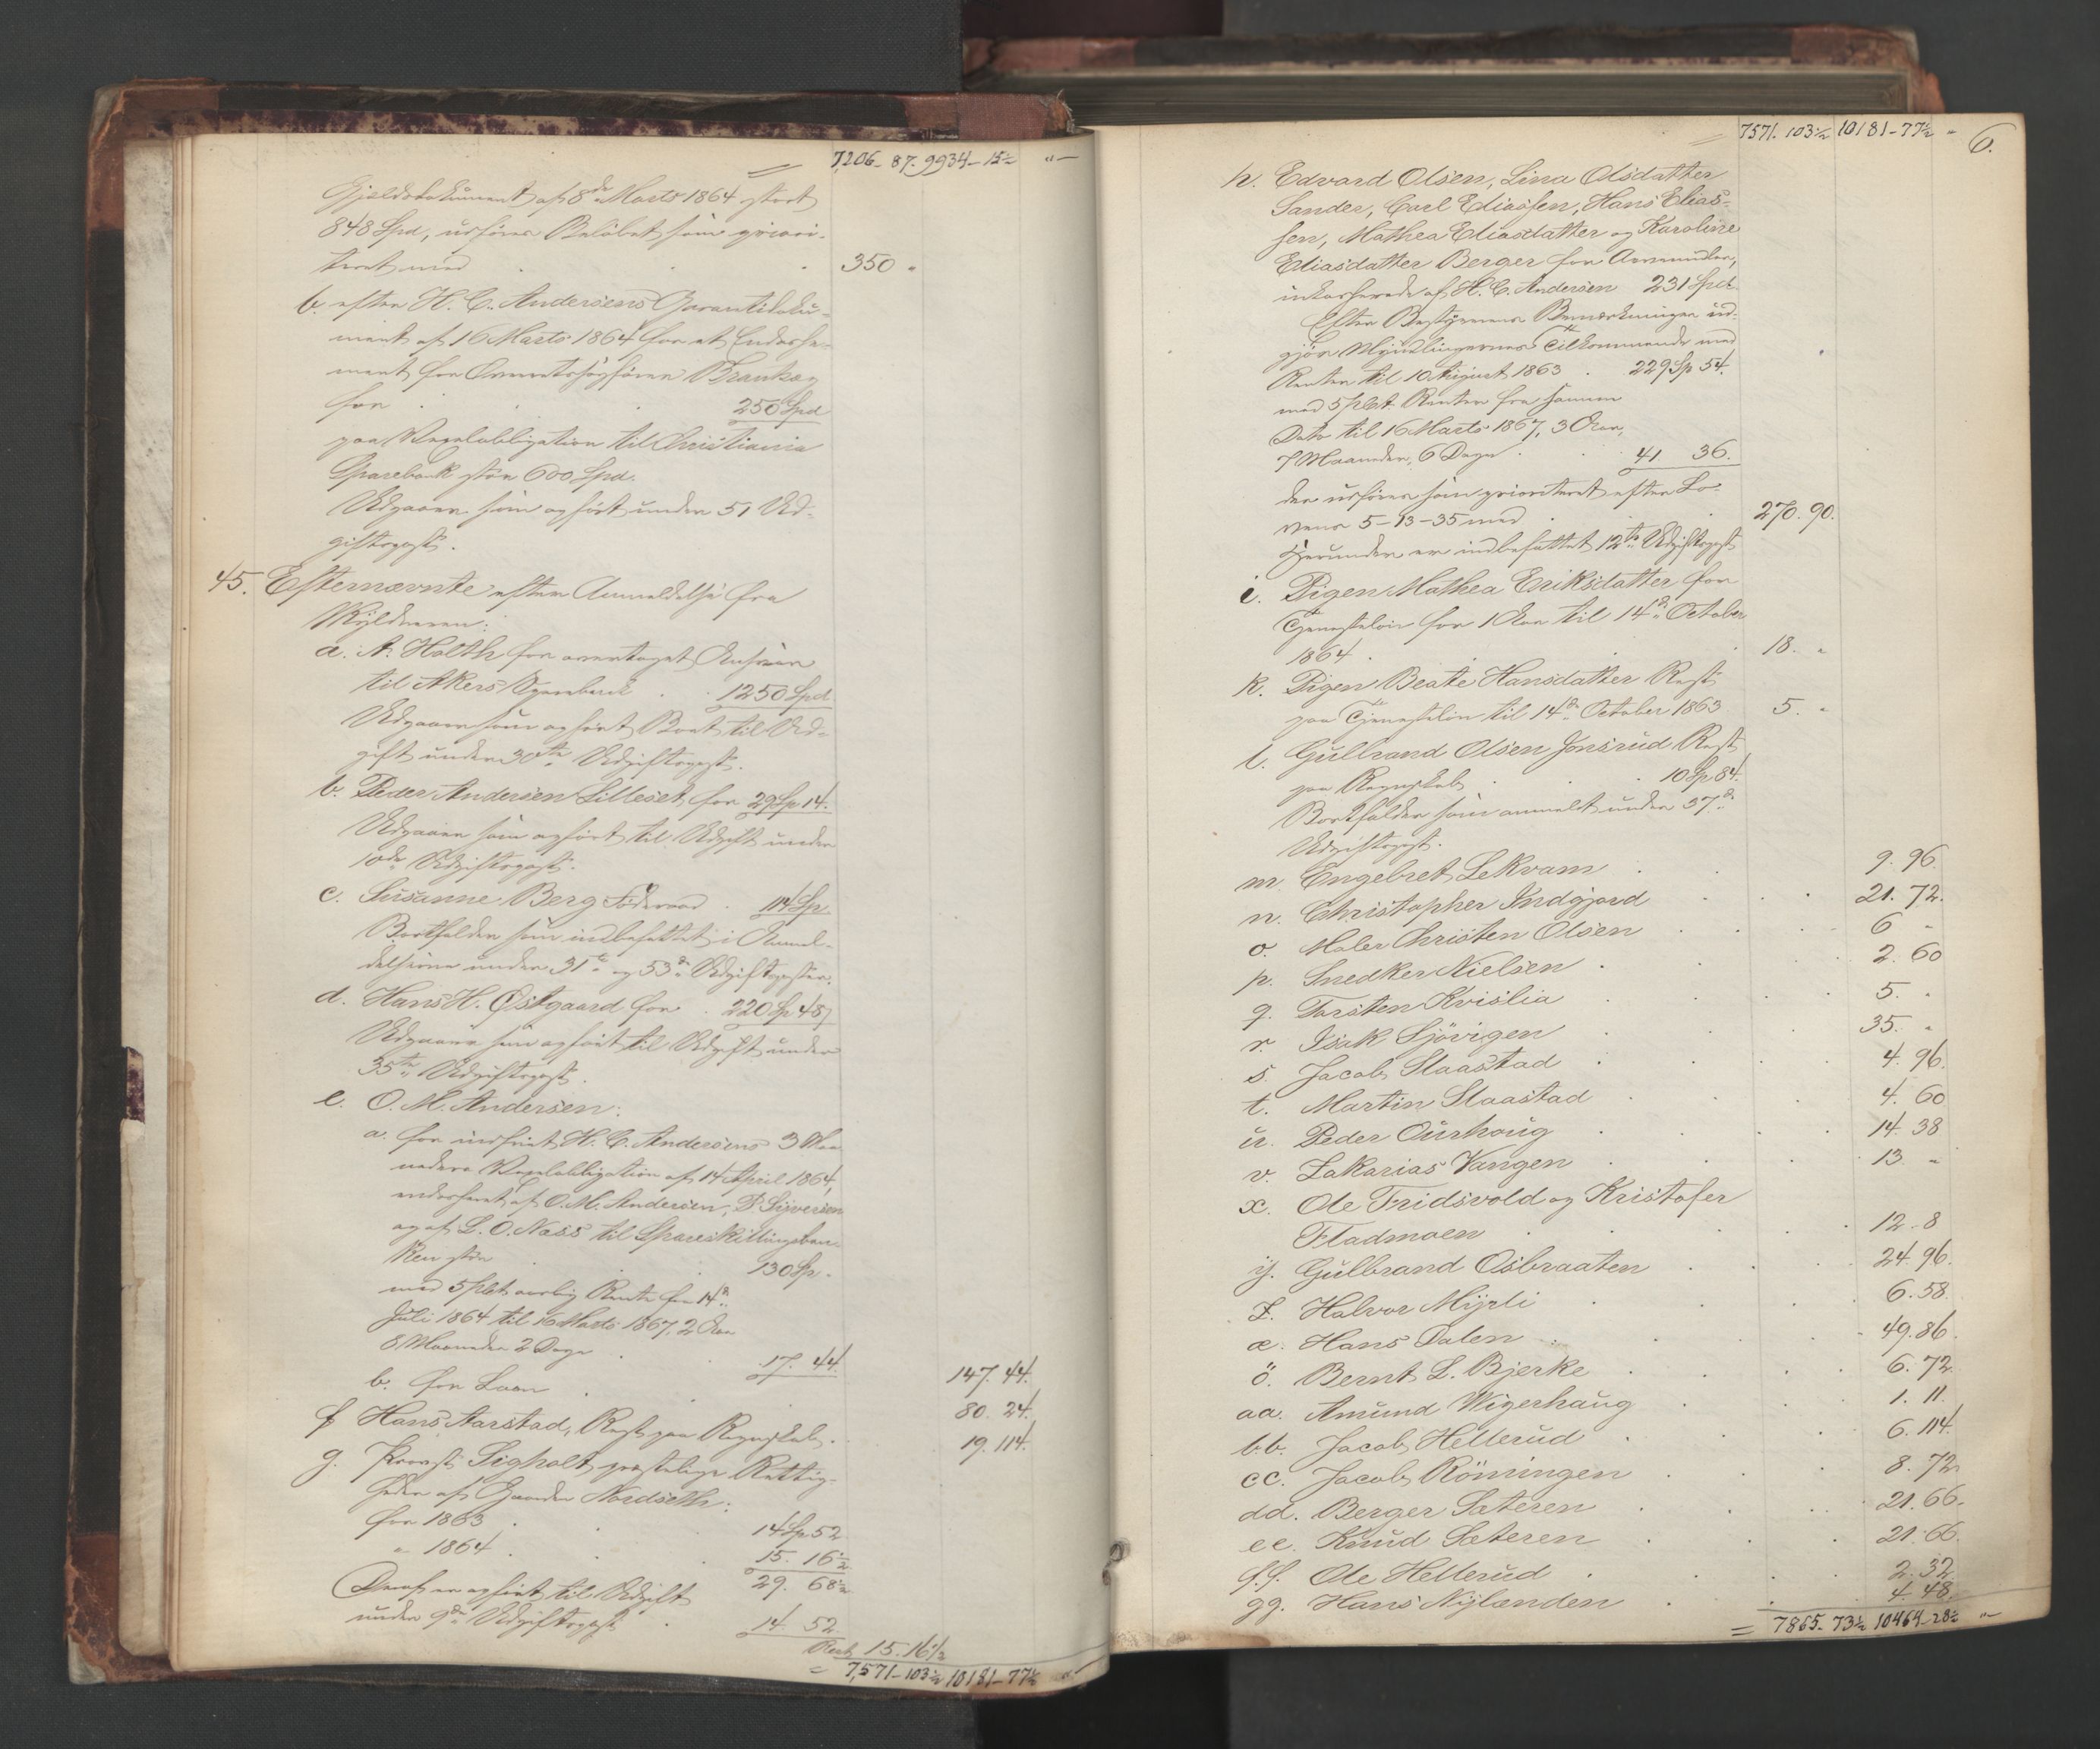 7206-87. 9934-15½ "-
Gjeldsdokument af 8de Marts 1864 stort
848 Spd, udføres Beløbet som priori-
teret med . . . 350 "
b. efter H. C. Andersens Garantidoku-
ment af 16 Marts 1864 for et Endosse-
ment for
for . . . 250 Spd
paa Vexelobligation til Christiania
Sparebank stor 600 Spd.
Udgaaer som opført under 51 Ud-
giftspost.
45. Efternævnte efter Anmeldelse fra
Skyldneren:
a. A. Holth for overtaget Ansvar
til Akers Sparebank . . 1250 Spd
Udgaaer som opført Boet til Ud-
gift under 30te Udgiftspost.
b. Peder Andersen Lilleset for 29 Sp 14.
Udgaaer som opført til Udgift under
10de Udgiftspost.
c. Susanne Berg Föderaad . 114 Sp
Bortfalder som indbefattet i Anmel-
delserne under 31te og 53de Udgiftsposter.
d. Hans H. Østgaard for . 220 Sp 48
Udgaaer som opført til Udgift under
35te Udgiftspost.
e. O. M. Andersen:
a. for indfriet H. C. Andersens 3 Maa-
neders Vexelobligation af 14 April 1864,
endosseret af O. M. Andersen, P. Siversen
og af L. O. Næss til Spareskillingsban-
ken stor . . 130 Sp -
med 5 pCt aarlig Rente fra 14de
Juli 1864 til 16 Marts 1867, 2 Aar
8 Maaneder 2 Dage . . 17. 44. 147. 44.
b. for Laan . . 80. 24.
f Hans Aarstad, Rest paa Regnskab . 19. 114.
g. Provst Sigholt præstelige Rettig-
heder af Gaarden Nordseth:
for 1863 . . 14 Sp 52
" 1864 . . 15. 16½
29. 68½
Deraf er opført til Udgift
under 9de Udgiftspost . 14 52
Rest 15. 16½
= 7,571-103½ 10181-77½ "-
7571. 103½ 10181-77½ " 6.
h. Edvard Olsen, Lina Olsdatter
Sander, Carl Eliassen, Hans Elias-
sen, Mathea Eliasdatter og Karoline
Eliasdatter Berger for Arvemidler,
inkasserede af H. C. Andersen 231 Spd.
Efter Bestyrerens Bemærkninger ud-
gjør Myndlingernes Tilkommende med
Renter til 10 August 1863 . 229 Sp 54.
med 5 pCt. Renter fra samme
Dato til 16 Marts 1867, 3 Aar,
7 Maaneder, 6 Dage . . 41 36.
der udføres som prioriteret efter Lo-
vens 5-13-35 med . . 270. 90.
Herunder er indbefattet 12te Udgiftspost
i. Pigen Mathea Eriksdatter for
Tjenesteløn for 1 Aar til 14de October
1864 . . . 18. "
k. Pigen Beate Hansdatter Rest
paa Tjenesteløn til 14de October 1863 5. "
l. Gulbrand Olsen Jonsrud Rest
paa Regnskab . . . 10 Sp 84.
Bortfalder som anmeldt under 37de
Udgiftspost.
m. Engebret Lekvam . 9. 96.
n. Christopher Indgjord . . . 21. 72.
o. Maler Christen Olsen . . . 6 "
p. Snedker Nielsen . . . 2. 60
q. Torsten Kvislia . . . 5. "
r. Isak Sjövigen . . . 35. "
s. Jacob Staastad . . . 4. 96.
t. Martin Staastad . . . 4. 60
u. Peder Ourhoug . . . 14. 38
v. Zakarias Vangen . . . 13 "
x. Ole Fridsvold og Kristofer
Fladmoen . . . 12. 8
y. Gulbrand Osbraaten . . . 24. 96.
z. Halvor Myrli . . . 6. 58.
æ. Hans Dalen . . . 49. 86.
ö. Bernt L. Bjerke . . . 6. 72.
aa. Amund Wigerhaug . . 1. 11.
bb. Jacob Hellerud . . . 6. 114.
cc. Jacob Röningen . . . 8. 72
dd. Berger Sæteren . . . 21. 66.
ee. Knud Sæteren . . . 21. 6.
ff. Ole Hellerud . . . 2. 32
gg. Hans Nylænden . . . 4. 48.
= 7865-73½ 10464-28½ "-